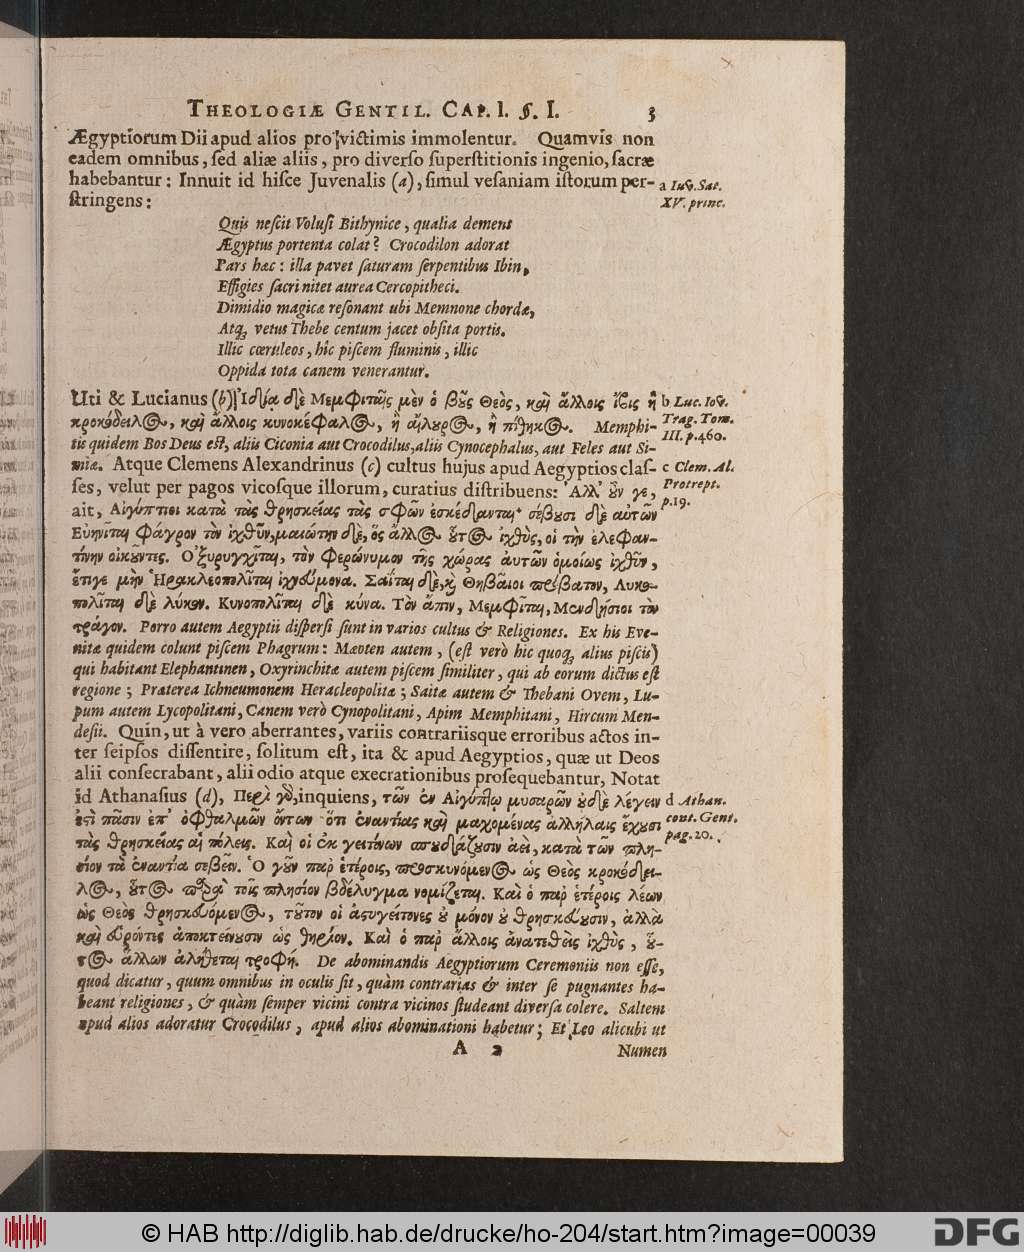 THEOLOGIÆ GENTIL. CAP. I. §. I. 3
Ægyptiorum Dii apud alios pro victimis immolentur. Quamvis non
eadem omnibus, ſed aliæ aliis, pro diverſo ſuperſtitionis ingenio, ſacræ
habebantur: Innuit id hiſce Juvenalis (a), ſimul veſaniam iſtorum per-
ſtringens:
a Iuv. Sat.
XV. princ.
Quis neſcit Voluſi Bithynice, qualia demens
Ægyptus portenta colat? Crocodilon adorat
Pars hæc: illa pavet ſaturam ſerpentibus Ibin,
Effigies ſacri nitet aurea Cercopitheci.
Dimidio magicæ reſonant ubi Memnone chordæ,
Atq; vetus Thebe centum jacet obſita portis.
Illic cœruleos, hîc piſcem fluminis, illic
Oppida tota canem venerantur.
Uti & Lucianus (b) Ἰδίᾳ δὲ Μεμφίταις μὲν ὁ βῦς Θεὸς, καὶ ἄλλοις ἴβις ἢ
κροκόδειλος, καὶ ἄλλοις κυνοκέφαλος, ἢ αἴλυρος, ἢ πίθηκος. Memphi-
tis quidem Bos Deus eſt, aliis Ciconia aut Crocodilus, aliis Cynocephalus, aut Feles aut Si-
miæ. Atque Clemens Alexandrinus (c) cultus hujus apud Aegyptios claſ-
ſes, velut per pagos vicoſque illorum, curatius diſtribuens: Ἀλλ' ȣ̓ν γε,
b Luc. Iov.
Trag. Tom.
III. p. 460.
c Clem. Al.
Protrept.
p. 19.
ait, Αἰγύπτιοι κατὰ τὰς θρησκείας τὰς σφῶν ἐσκέδανται· σέβȣσι δὲ αὐτῶν
Εὐηνῖται φάγρον τὸν ἰχθῦν, μαιώτην δὲ, ὅς ἄλλος ȣ̔τος ἰχθὺς, οἱ τὴν ἐλεφαν-
τίνην οἰκȣ͂ντες. Ὀξυρυγχῖται, τὸν φερώνυμον τῆς χώρας αὐτῶν ὁμοίως ἰχθῦν,
ἔτιγε μὴν Ἡρακλεοπολῖται ἰχνεύμονα. Σαΐται δὲ, καὶ Θηβαῖοι πρόβατον, Λυκο-
πολῖται δὲ λύκον. Κυνοπολῖται δὲ κύνα. Τὸν ἄπιν, Μεμφῖται, Μενδήσιοι τὸν
τράγον. Porro autem Aegyptii diſperſi ſunt in varios cultus & Religiones. Ex his Eve-
nitæ quidem colunt piſcem Phagrum: Mæoten autem, (eſt verò hic quoq; alius piſcis)
qui habitant Elephantinen, Oxyrinchitæ autem piſcem ſimiliter, qui ab eorum dictus eſt
regione; Præterea Ichneumonem Heracleopolitæ; Saitæ autem & Thebani Ovem, Lu-
pum autem Lycopolitani, Canem verò Cynopolitani, Apim Memphitani, Hircum Men-
deſii. Quin, ut à vero aberrantes, variis contrariisque erroribus actos in-
ter ſeipſos diſſentire, ſolitum eſt, ita & apud Aegyptios, quæ ut Deos
alii conſecrabant, alii odio atque execrationibus proſequebantur, Notat
id Athanaſius (d), Περὶ γὸ, inquiens, τῶν ἐν Αἰγύπτῳ μυσαρῶν ȣ̓δὲ λέγειν
ἐστὶ πᾶσιν ἐπ' ὀφθαλμῶν ὄντων ὅτι ἐναντίας καὶ μαχομένας ἀλλήλαις ἔχȣσι
d Athan.
cont. Gent.
pag. 20.
τὰς θρησκείας αἱ πόλεις. Καὶ οἱ ἐκ γειτόνων σπȣδάζȣσιν ἀεὶ, κατὰ τῶν πλη-
σίον τὰ ἐναντία σεβεῖν. Ὁ γȣ͂ν παρ' ἑτέροις, προσκυνόμενος ὡς Θεὸς κροκόδει-
λος, ȣ̔τος παρὰ τοῖς πλησίον βδέλυγμα νομίζεται. Καὶ ὁ παρ' ἑτέροις λέων
ὡς Θεὸς θρησκευόμενος, τȣ͂τον οἱ ἀστυγείτονες ȣ̓ μόνον ȣ̓ θρησκεύȣσιν, ἀλλὰ
καὶ εὑρόντες ἀποκτείνȣσιν ὡς θηρίον. Καὶ ὁ παρ' ἄλλοις ἀνατεθεὶς ἰχθὺς, ȣ̔-
τος ἄλλων ἀλήθεται τροφή. De abominandis Aegyptiorum Ceremoniis non eſſe,
quod dicatur, quum omnibus in oculis ſit, quàm contrarias & inter ſe pugnantes ha-
beant religiones, & quàm ſemper vicini contra vicinos ſtudeant diverſa colere. Saltem
apud alios adoratur Crocodilus, apud alios abominationi habetur; Et Leo alicubi ut
A 2 Numen
© HAB http://diglib.hab.de/drucke/ho-204/start.htm?image=00039
DFG